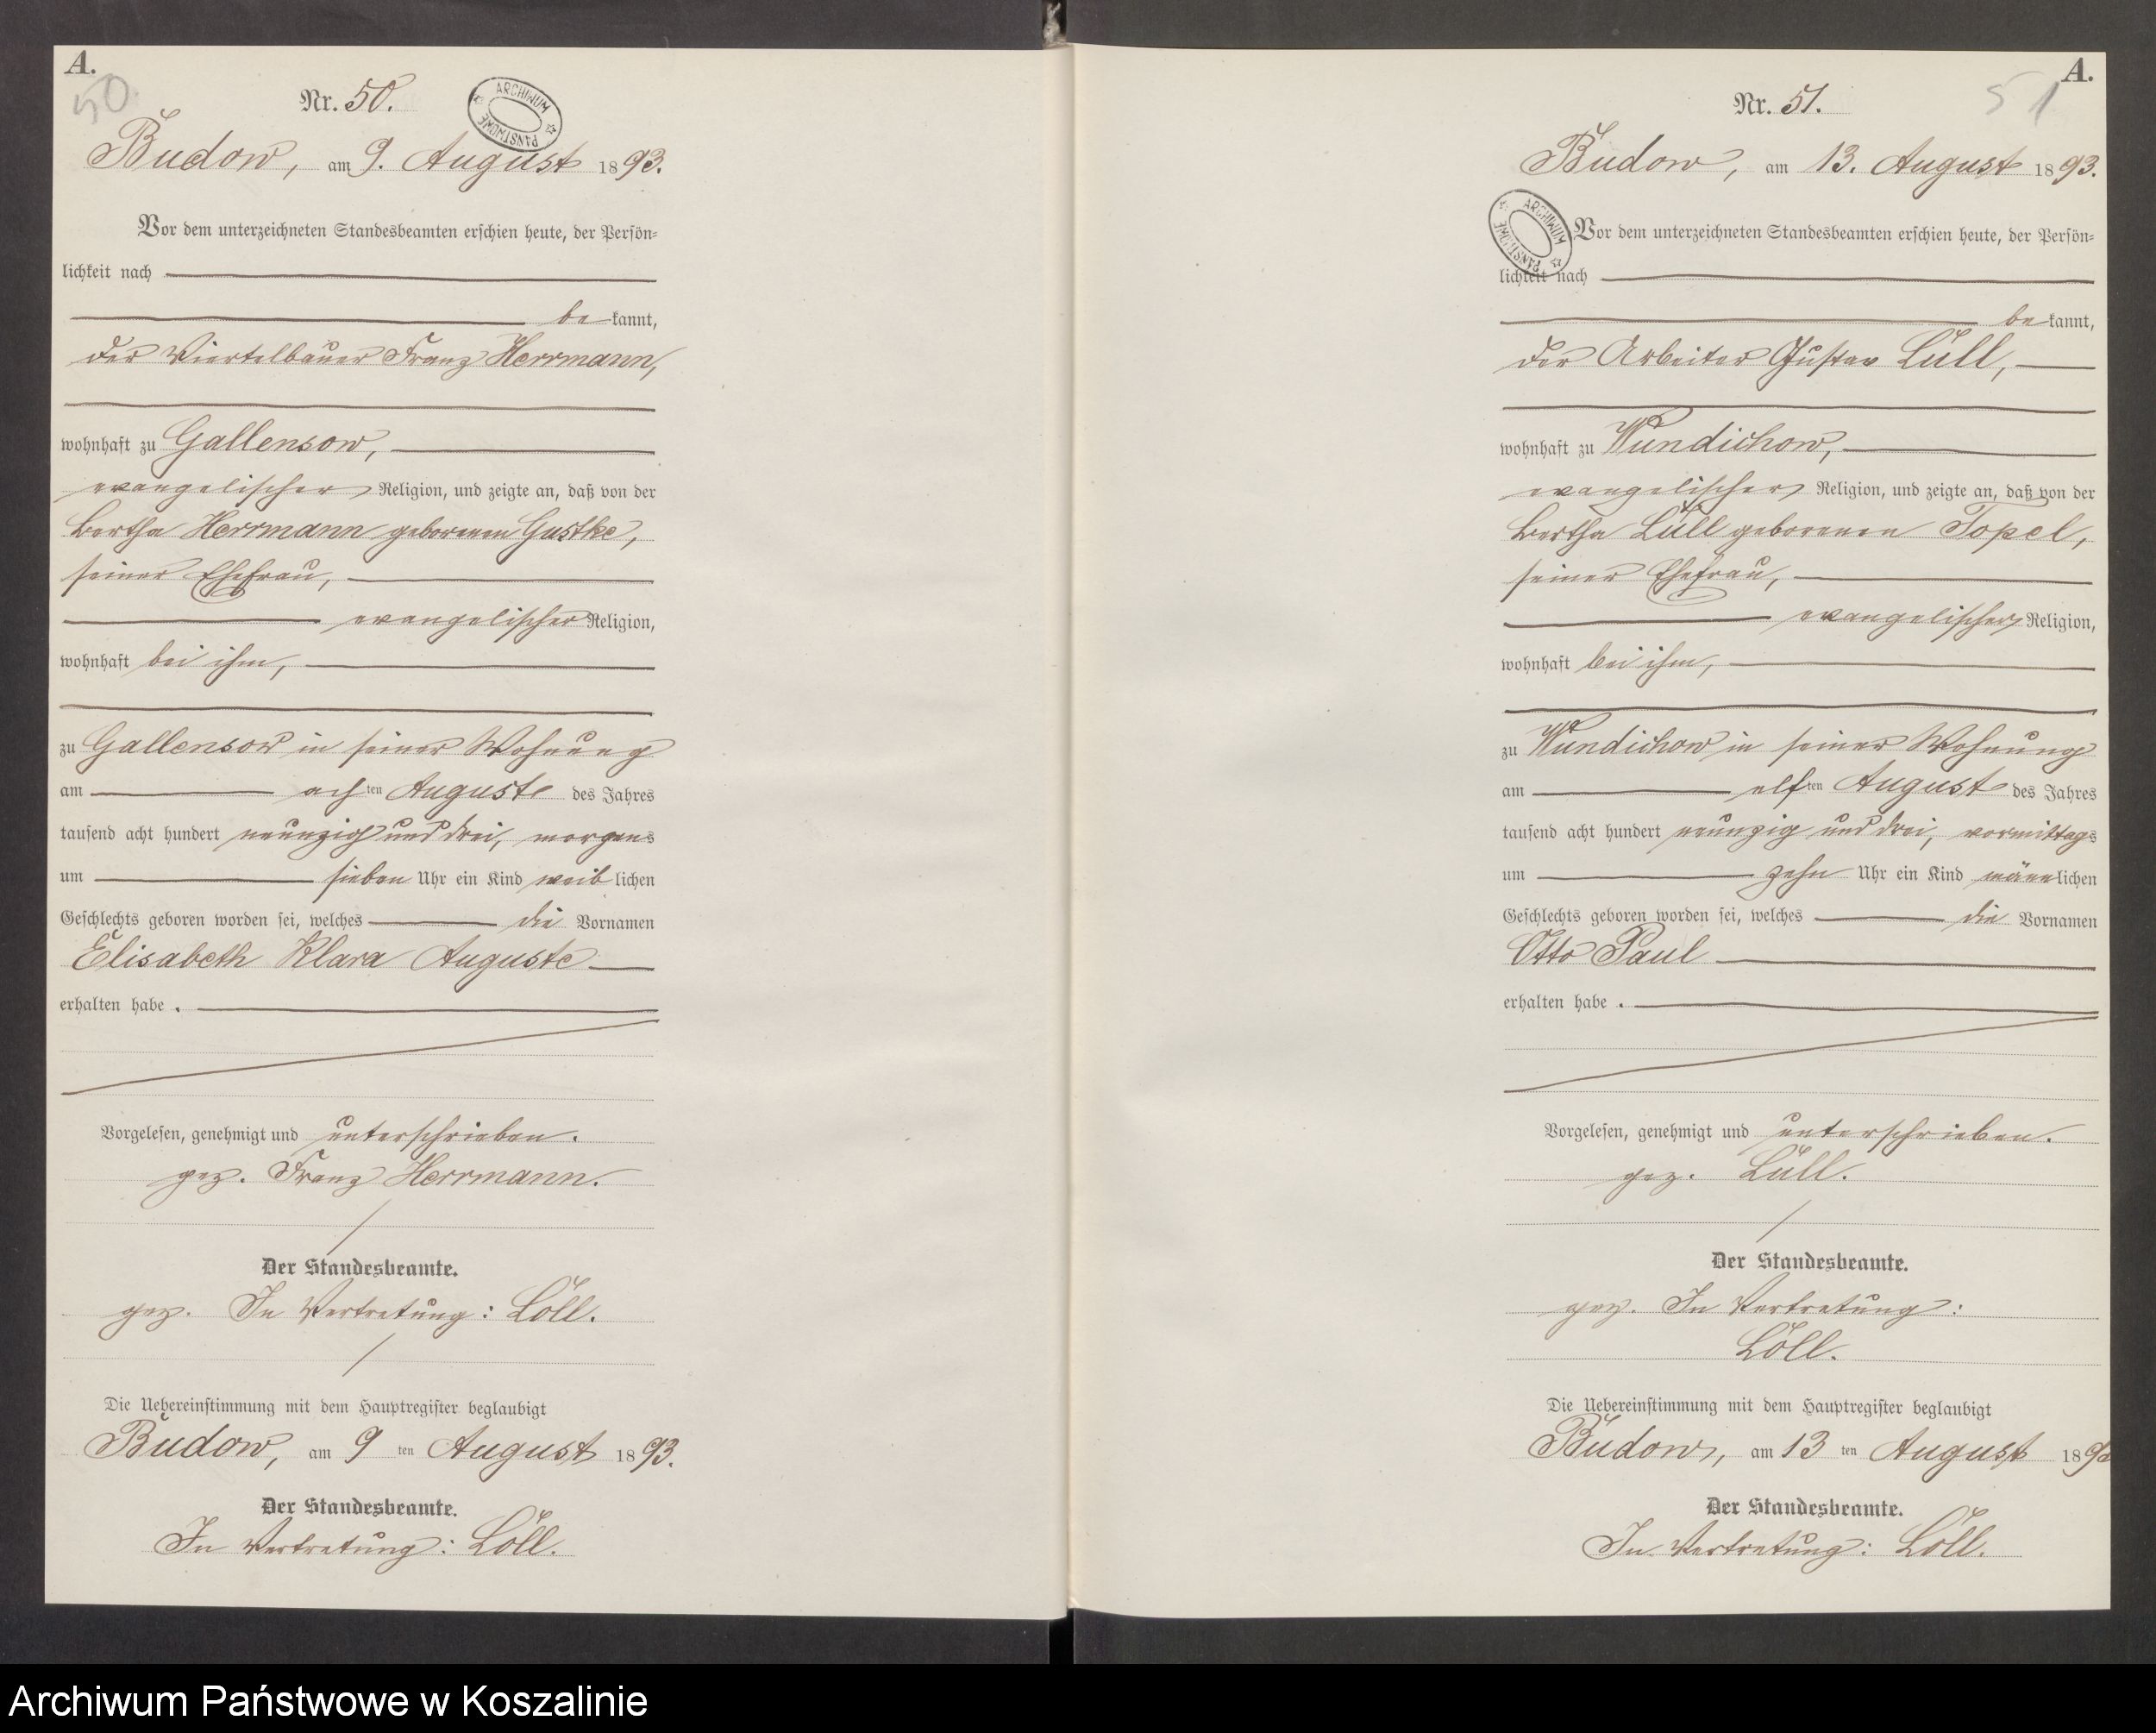 A.
50.
Nr. 50.
ARCHIWUM PAŃSTWOWE
Budow, am 9. August 1893.
Vor dem unterzeichneten Standesbeamten erschien heute, der Persön=
lichkeit nach
bekannt,
der Viertelbauer Franz Herrmann,
wohnhaft zu Gallensow,
evangelischer Religion, und zeigte an, daß von der
Bertha Herrmann geborenen Gustke,
seiner Ehefrau,
evangelischer Religion,
wohnhaft bei ihm,
zu Gallensow in seiner Wohnung
am achten Auguste des Jahres
tausend acht hundert neunzig und drei, morgens
um sieben Uhr ein Kind weiblichen
Geschlechts geboren worden sei, welches die Vornamen
Elisabeth Klara Auguste
erhalten habe.
Vorgelesen, genehmigt und unterschrieben.
gez. Franz Herrmann.
Der Standesbeamte.
gez. In Vertretung: Löll.
Die Uebereinstimmung mit dem Hauptregister beglaubigt
Budow, am 9ten August 1893.
Der Standesbeamte.
In Vertretung: Löll.
A.
51
Nr. 51.
Budow, am 13. August 1893.
ARCHIWUM PAŃSTWOWE
Vor dem unterzeichneten Standesbeamten erschien heute, der Persön=
lichkeit nach
bekannt,
der Arbeiter Gustav Lüll,
wohnhaft zu Wundichow,
evangelischer Religion, und zeigte an, daß von der
Bertha Lüll geborenen Topel,
seiner Ehefrau,
evangelischer Religion,
wohnhaft bei ihm,
zu Wundichow in seiner Wohnung
am elften August des Jahres
tausend acht hundert neunzig und drei, vormittags
um zehn Uhr ein Kind männlichen
Geschlechts geboren worden sei, welches die Vornamen
Otto Paul
erhalten habe.
Vorgelesen, genehmigt und unterschrieben.
gez. Lüll.
Der Standesbeamte.
gez. In Vertretung:
Löll.
Die Uebereinstimmung mit dem Hauptregister beglaubigt
Budow, am 13ten August 1893
Der Standesbeamte.
In Vertretung: Löll.
Archiwum Państwowe w Koszalinie